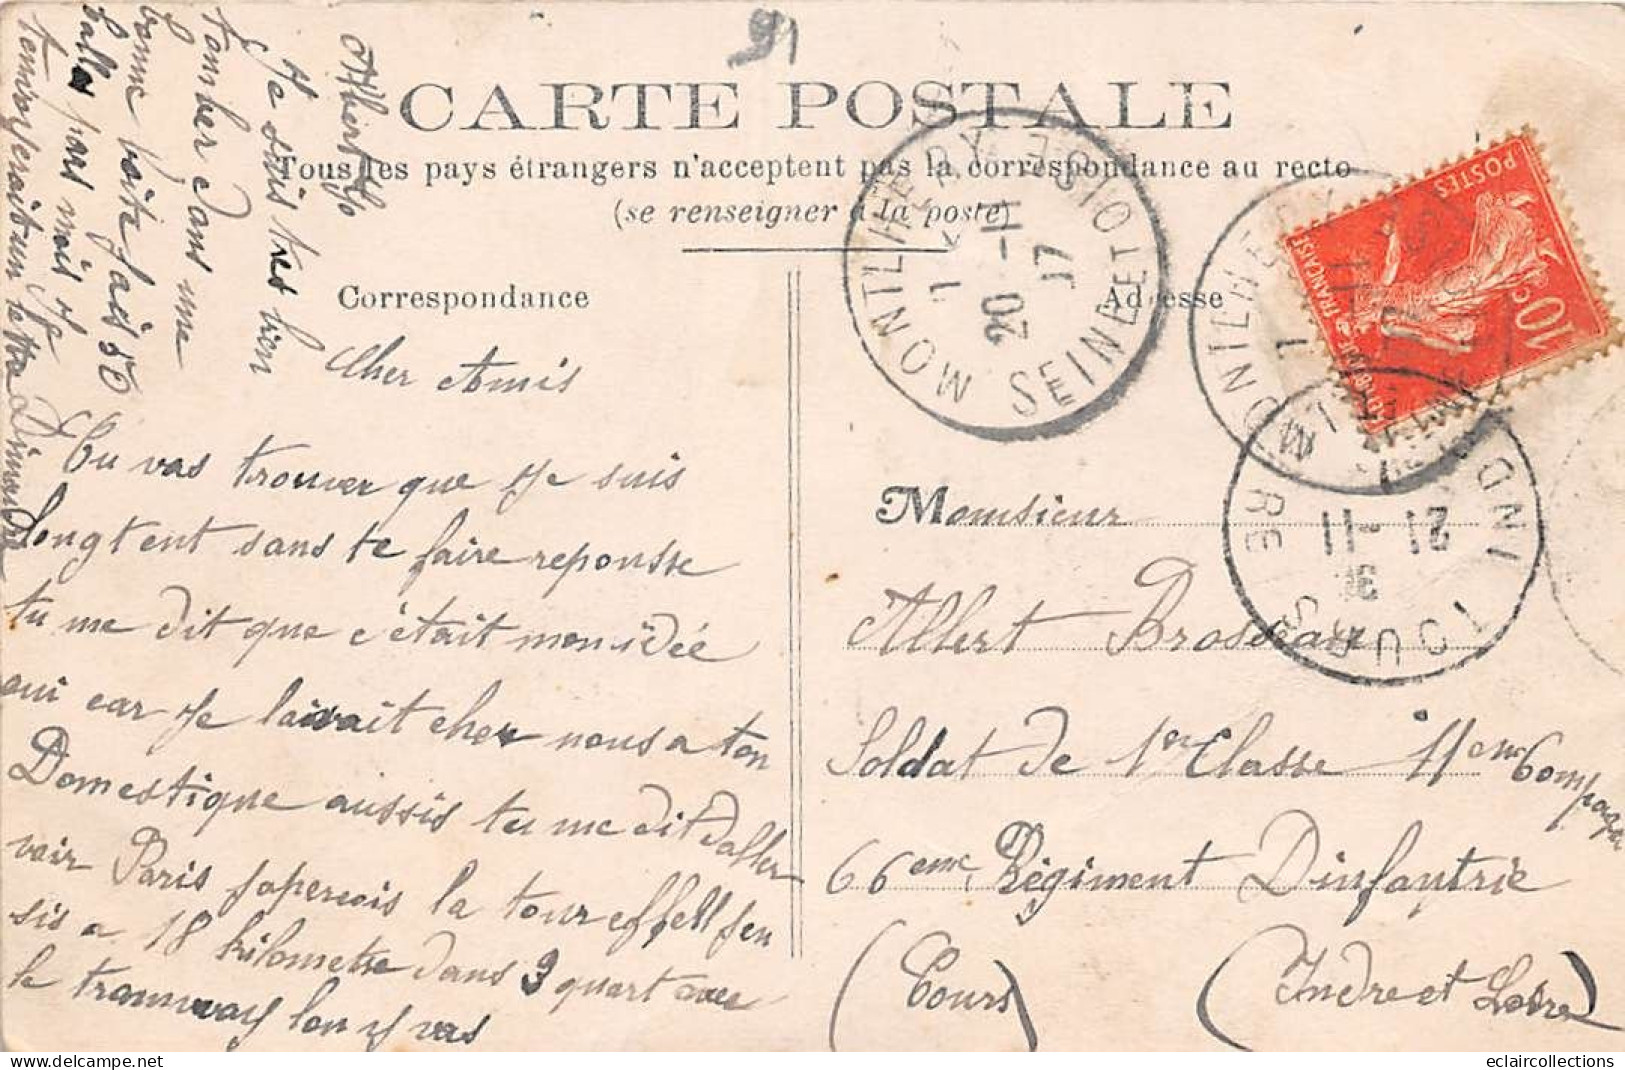 CARTE POSTALE
Tous les pays étrangers n'acceptent pas la correspondance au recto
(se renseigner à la poste)
Correspondance
Adresse
Cher Amis
Tu vas trouver que Je suis
longtent sans te faire reponsse
tu me dit que c'était mon idée
oui car Je laisait cher nous a ton
Domestique aussis tu me dit daller
voir Paris japerçois la tour effell jen
sis a 18 kilometre dans 3 quart avec
le tramway lon y vas
Je suis tres bien
tomber dans une
bonne boite jais 50
balles pars mois Je
termine
Dimanche
Albert
Monsieur
Albert Brosseau
Soldat de 1er Classe 11eme Compagnie
66eme Régiment Dinfantrie
(Tours) (Indre et Loire)
MONTLHERY SEINE ET OISE
20 -11
17
MONTLHERY
TOURS INDRE
21 -11
POSTES
REPUBLIQUE FRANÇAISE
10c
eclaircollections